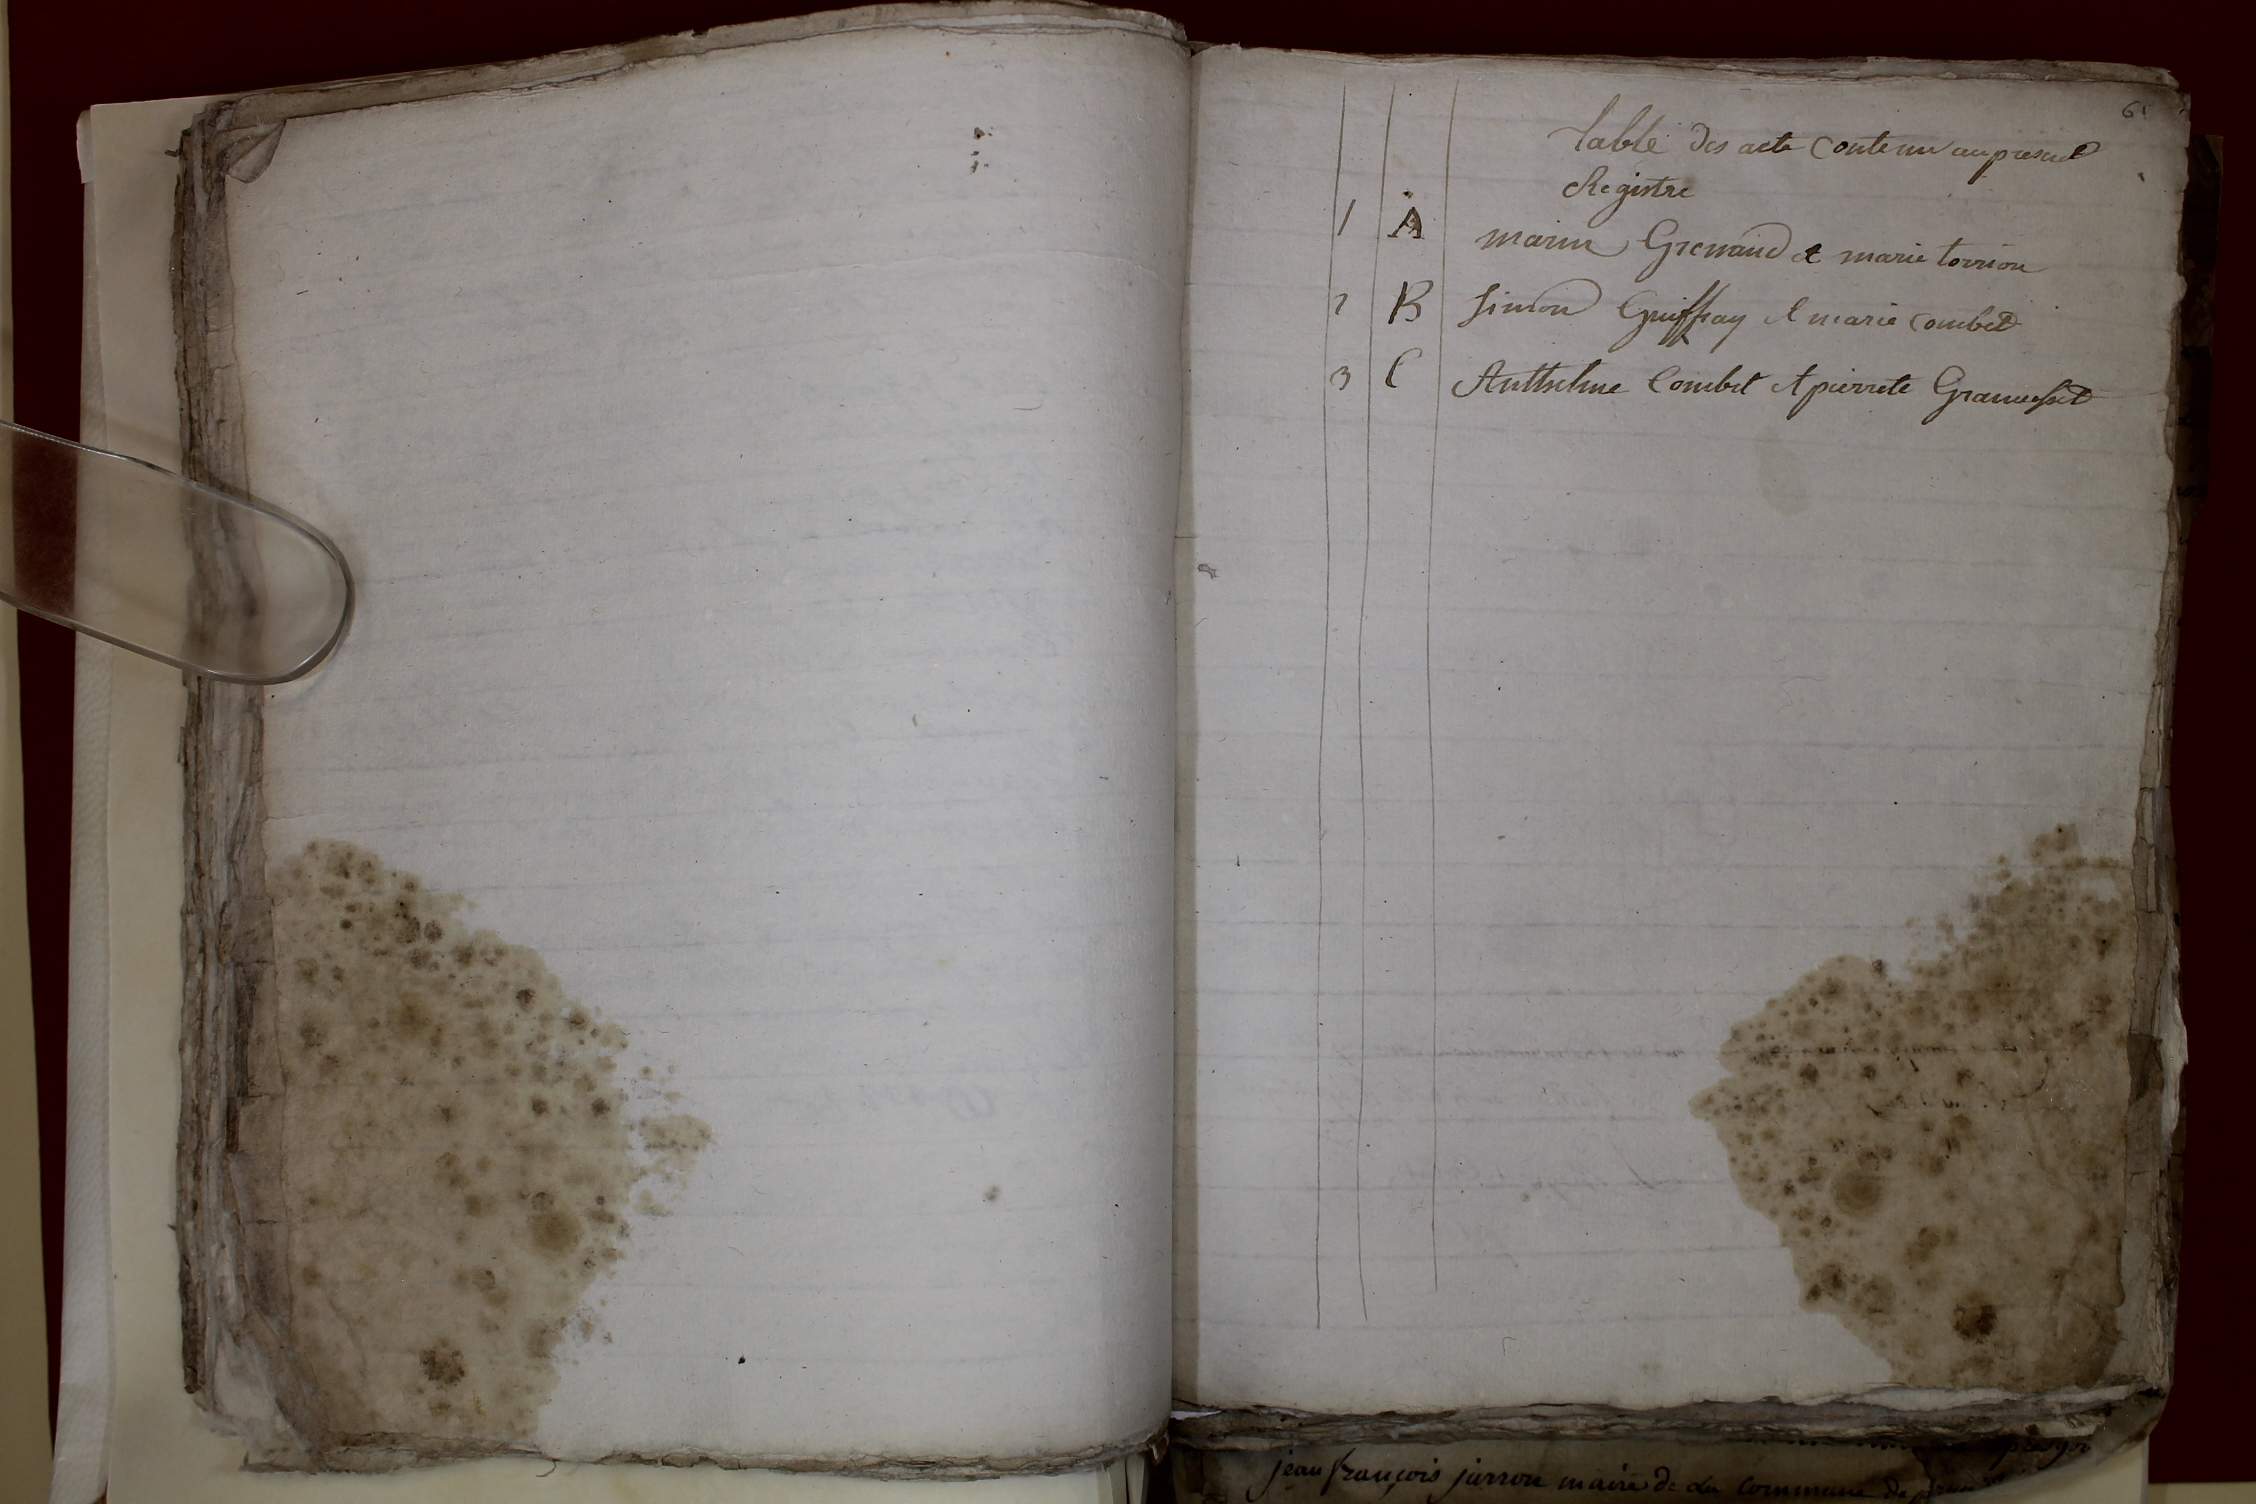 61
table des acte contenu au présent
Registre
1 A marin Grenaud et marie torrion
2 B Simon Guiffray et marie combet
3 C Anthelme Combet et pierrete
jean françois jarron maire de la commune de